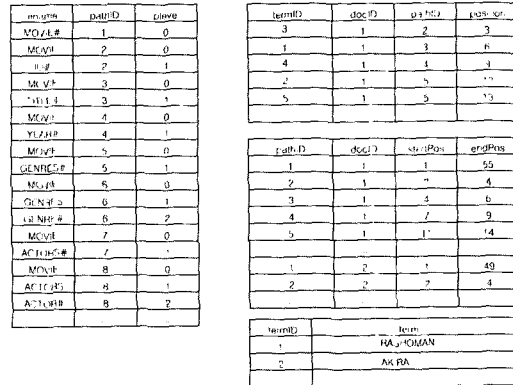 pathID
MOVIE# 1 0
MOVIE 2 0
2 1
MOVIE 3 0
3 1
MOVIE 4 0
YEAR# 4 1
MOVIE 5 0
GENRES# 5 1
MOVIE 6 0
GENRES 6 1
GENRE# 6 2
MOVIE 7 0
ACTORS# 7 1
MOVIE 8 0
ACTORS 8 1
ACTOR# 8 2
termID docID pathID position
3 1 2 3
1 1 3 6
4 1 4 9
2 1 5
5 1 5 13
pathID docID startPos endPos
1 1 1 55
2 1 4
3 1 4 6
4 1 7 9
5 1 11 14
1 2 1 49
2 2 2 4
termID term
1
2